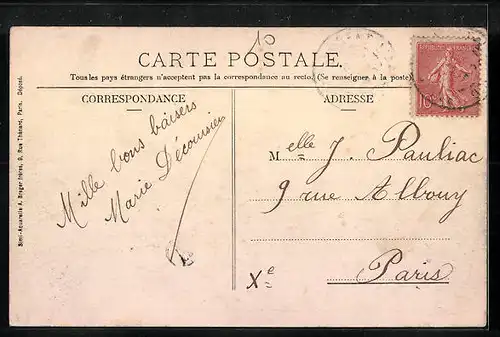 10
CARTE POSTALE.
Tous les pays étrangers n'acceptent pas la correspondance au recto. (Se renseigner à la poste)
CORRESPONDANCE
ADRESSE
Mille bons baisers
Marie Décoursier
Melle J. Pauliac
9 rue Albouy
Xe
Paris
RÉPUBLIQUE FRANÇAISE
10
Semi-Aquarelle A. Breger frères, 9, Rue Thénard, Paris. Déposé.